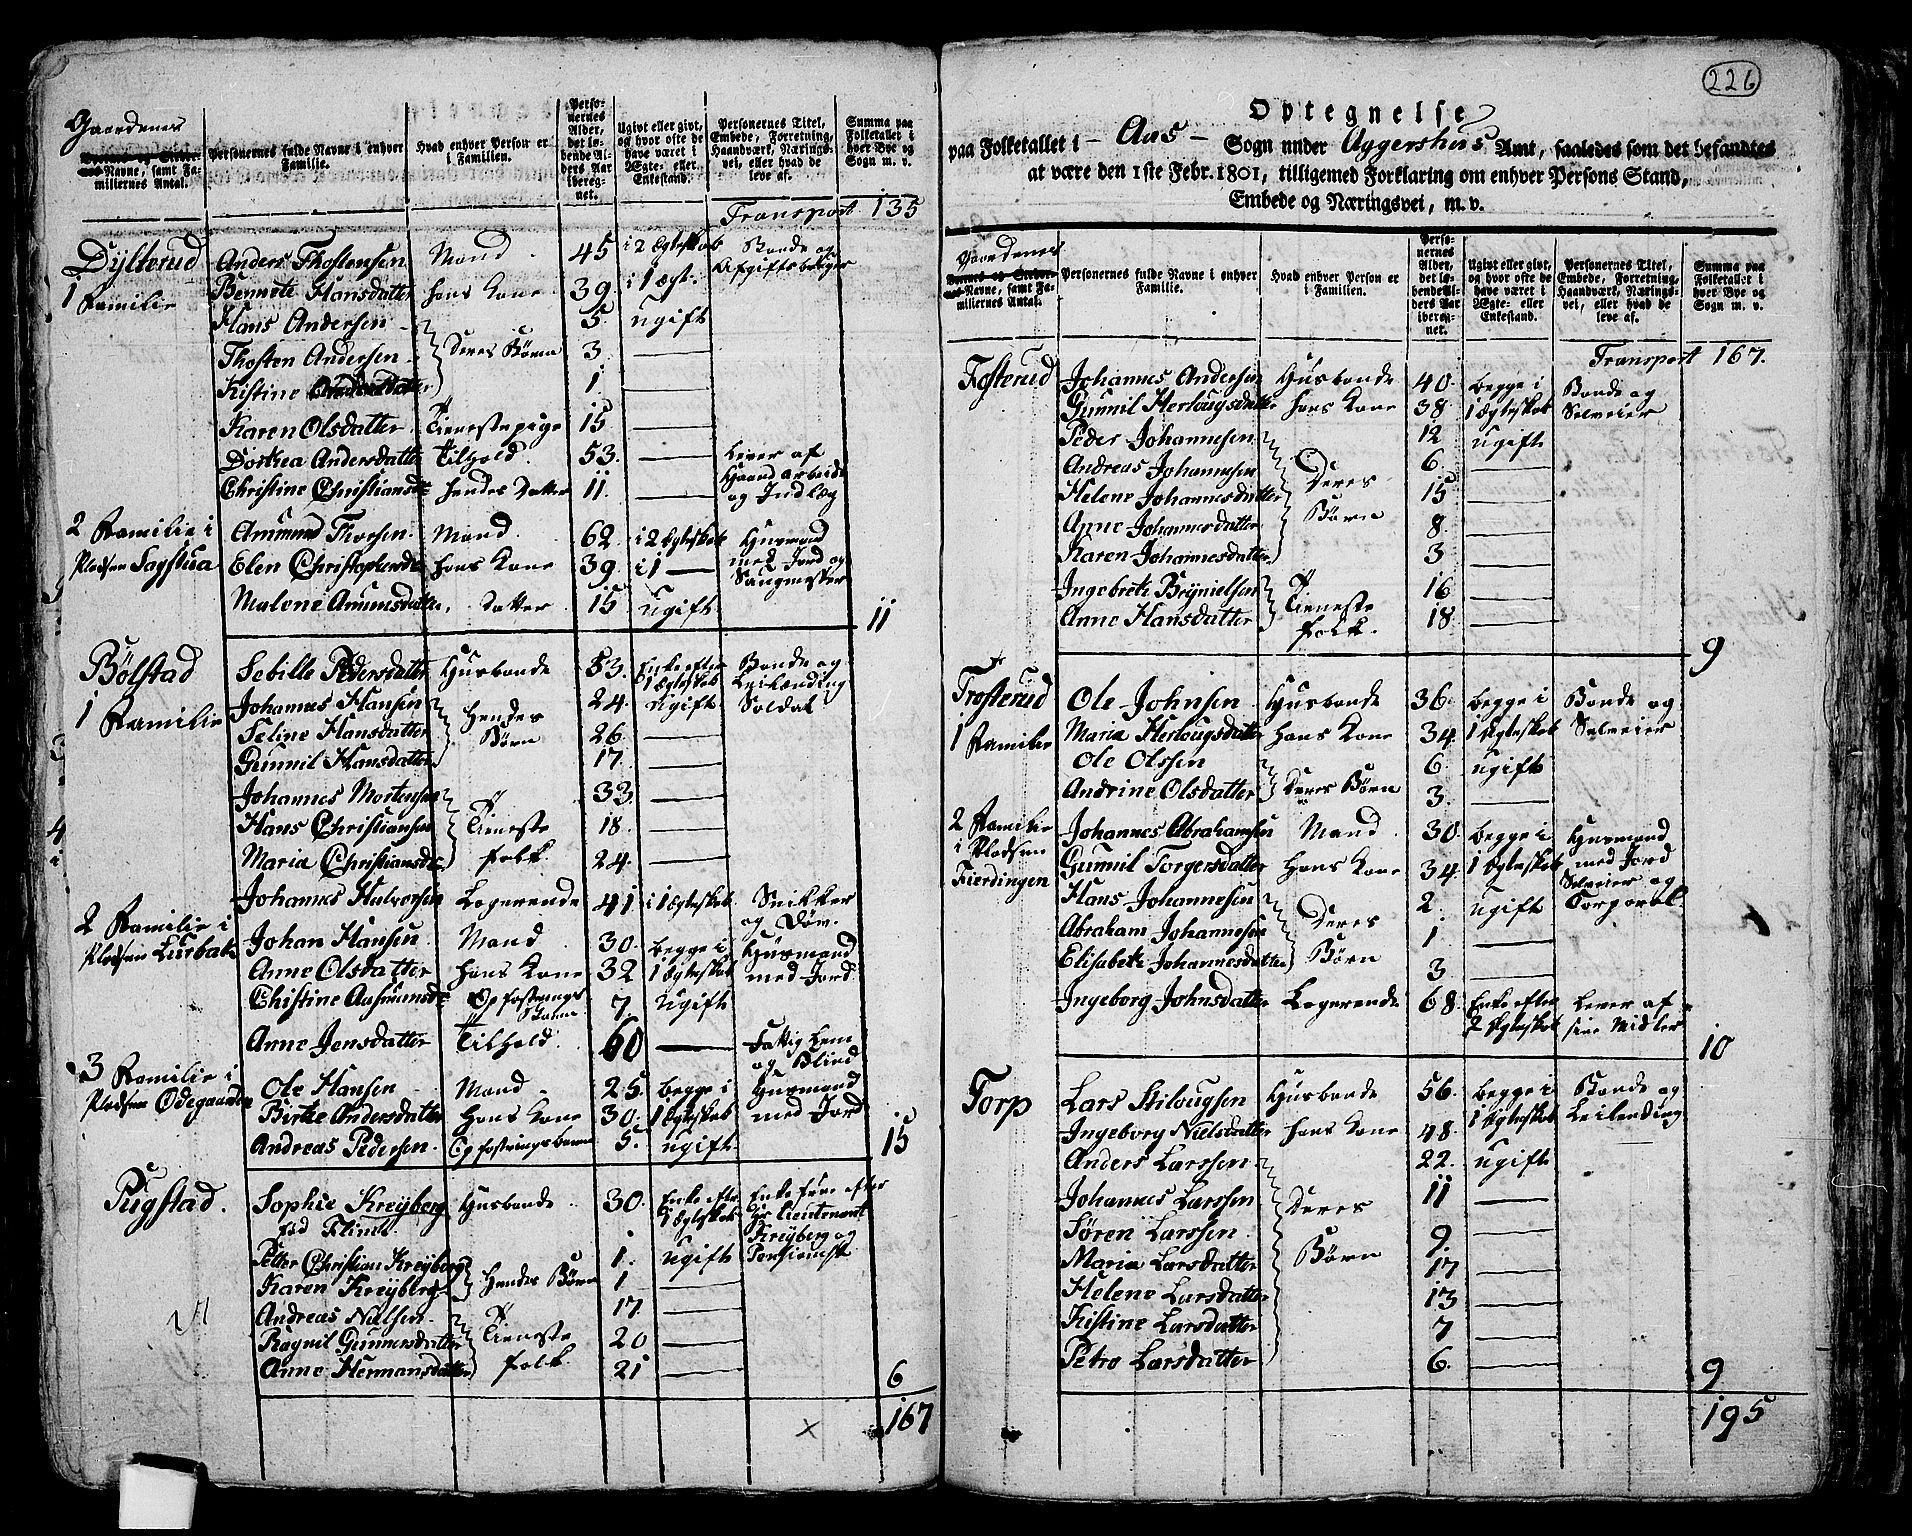 Gaardenes
Byernes og Steder-
nes Navne, samt Fa-
miliernes Antal.
Personernes fulde Navne i enhver
Familie.
Hvad enhver Person er
i Familien.
Perso-
nernes
Alder,
det lø-
bende Al-
ders Aar
ibereg-
net.
Ugivt eller givt,
og hvor ofte de
have været i
Ægte- eller
Enkestand.
Personernes Titel,
Embede, Forretning,
Haandværk, Nærings-
vei, eller hvad de
leve af.
Summa paa
Folketallet i
hver Bye og
Sogn m. v.
Transport 135
Dÿsterud Anders Thostensen Mand 45 i 2 Ægteskab Bonde og
1 Familie Bennete Hansdatter hans Kone 39. i 1 Ægt: Afgiftsbruger
Hans Andersen 5. ugift
Thosten Andersen Deres Børn 3 —
Kistine Andersdatter 1. —
Karen Olsdatter Tienestepige 15 —
Dorthea Andersdatter Tilhold 53. — Lever af
Haand arbeide
Christine Christiansdr hendes Datter 11. — og Indlæg
2 Familie i Amund Thorsen Mand 62. i 2 Ægteskab Huusmand
Pladsen Sagstua Elen Christophersdr hans Kone 39. i 1 — med Jord og
Saugmester
Malene Amunsdatter Datter 15 ugift
11
Bölstad Sebille Pedersdatter Husbonde 53. Enke efter Bonde og
1 Ægteskab Leilænding
1 Familie Johannes Hansen Hendes 24. ugift Soldat
Seline Hansdatter Børn 26 —
Gunnil Hansdatter 17. —
Johannes Mortensen 33. —
Hans Christiansen Tieneste 18. —
Maria Christiansdr folk 24. —
Johannes Halvorsen Logerende 41 i 1 Ægteskab Snikker
2 Familie i og Dør.
Pladsen Lurbak Johan Hansen Mand 30. begge i Huusmand
Anne Olsdatter hans Kone 32 1 Ægteskab med Jord
Christine Aasmunsdr Opfostrings 7. ugift
Barn
Anne Jensdatter Tilhold 60 — Fattig Lem
og Blind
3 Familie i Ole Hansen Mand 25. begge i Huusmand
Pladsen Ødegaarden Birthe Andersdatter Hans Kone 30. 1 Ægteskab med Jord
Andreas Pedersen Opfostringsbarn 5. ugift
15
Pugstad. Sophie Kreÿberg Husbonde 30. Enke efter Enke frue efter
fød Flindt 1 Ægteskab Hr Lieutenant
Kreÿberg og
Petter Christian Kreÿberg 1. ugift Pensionist
Karen Kreÿberg Hendes Børn 1 —
Andreas Nielsen 17. —
Ragnil Gunnersdatter Tieneste 20 —
Anne Hermansdatter folk 21 —
6
167
226
Optegnelse
paa Folketallet i - Aas - Sogn under Aggershus Amt, saaledes som det befandtes
at være den 1ste Febr. 1801, tilligemed Forklaring om enhver Persons Stand,
Embede og Næringsvei, m. v.
Gaardenes
Byernes og Steder-
nes Navne, samt Fa-
miliernes Antal.
Personernes fulde Navne i enhver
Familie.
Hvad enhver Person er
i Familien.
Perso-
nernes
Alder,
det lø-
bende Al-
ders Aar
ibereg-
net.
Ugivt eller givt,
og hvor ofte de
have været i
Ægte- eller
Enkestand.
Personernes Titel,
Embede, Forretning,
Haandværk, Nærings-
vei, eller hvad de
leve af.
Summa paa
Folketallet i
hver Bye og
Sogn m. v.
Transport 167.
Fosterud Johannes Andersen Husbonde 40. begge i Bonde og
Gunnil Herlougsdatter hans Kone 38 1 Ægteskab Selveier
Peder Johannesen 12 ugift
Andreas Johannesen Deres 6. —
Helene Johannesdatter 15 —
Anne Johannesdatter Børn 8 —
Karen Johannesdatter 3 —
Ingebreth Brynielsen Tieneste 16 —
Anne Hansdatter folk. 18 —
9
Trosterud Ole Johnsen Husbonde 36. begge i Bonde og
1 Familie Maria Herlougsdatter hans Kone 34 1 Ægteskab Selveier
Ole Olssen 6. ugift
Andrine Olsdatter Deres Børn 3. —
2 Familie Johannes Abrahamsen Mand 30. begge i Huusmand
i Pladsen Gunnil Torgersdatter Hans Kone 34 1 Ægteskab med Jord
Fierdingen Selveier og
Hans Johannesen Deres 2. ugift Corporal
Abraham Johannesen 1. —
Elisabeth Johannesdatter Børn 3 —
Ingeborg Johnsdatter Logerende 68. Enke efter Lever af
2 Ægteskab sine Midler
10
Torp Lars Skilougsen Husbonde 56. begge i Bonde og
Ingeborg Nielsdatter hans Kone 48. 1 Ægteskab Leilending
Anders Larssen 22. ugift
Johannes Larssen Deres 11 —
Søren Larssen 9. —
Maria Larsdatter Børn 17 —
Helene Larsdatter 13 —
Kistine Larsdatter 7 —
Petro Larsdatter 6. —
9
195